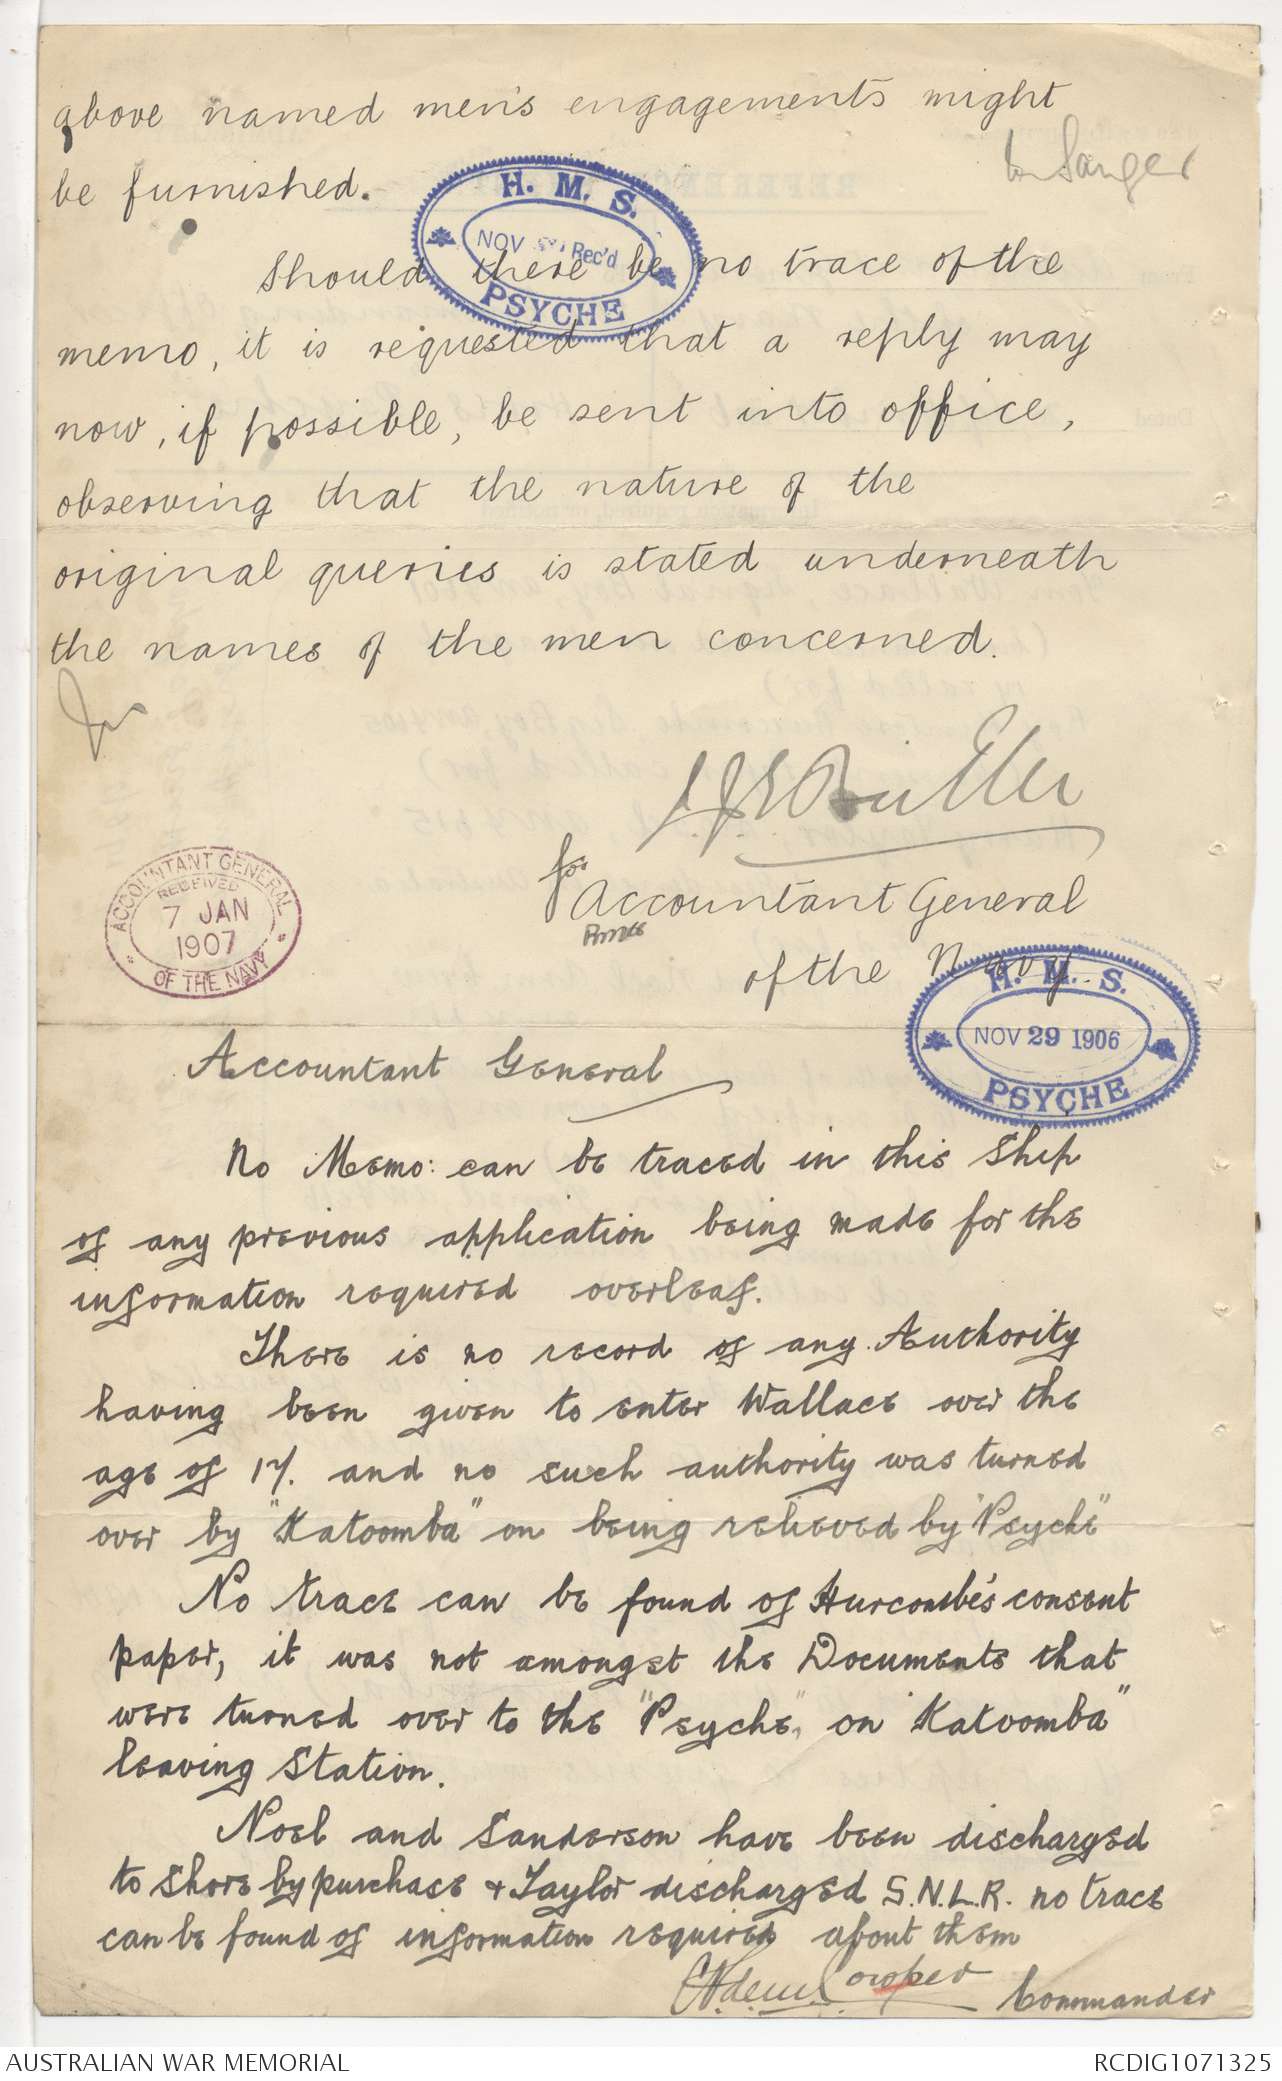 above named men's engagements might
be furnished.
H. M. S.
NOV Rec'd
PSYCHE
Should there be no trace of the
memo, it is requested that a reply may
now, if possible, be sent into office,
observing that the nature of the
original queries is stated underneath
the names of the men concerned.
for
Accountant General
of the Navy.
ACCOUNTANT GENERAL
RECEIVED
7 JAN
1907
OF THE NAVY
H. M. S.
NOV 29 1906
PSYCHE
Accountant General
No Memo: can be traced in this Ship
of any previous application being made for the
information required overleaf.
There is no record of any Authority
having been given to enter Wallace over the
age of 17. and no such authority was turned
over by "Katoomba" on being relieved by "Psyche"
No trace can be found of Hurcombe's consent
paper, it was not amongst the Documents that
were turned over to the "Psyche", on "Katoomba"
leaving Station.
Noel and Sanderson have been discharged
to shore by purchase & Taylor discharged S.N.L.R. no trace
can be found of information required about them
Cowper Commander
AUSTRALIAN WAR MEMORIAL
RCDIG1071325